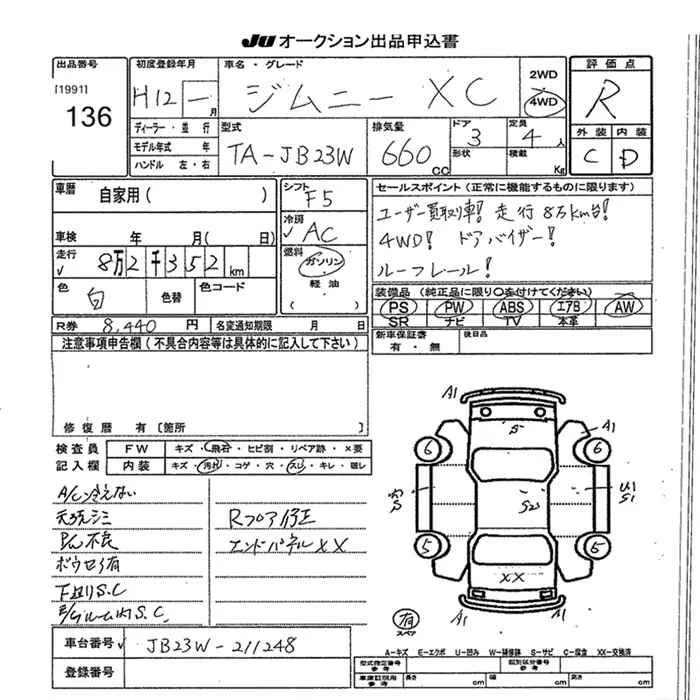 JU オークション出品申込書
出品番号
[1991]
136
初度登録年月
H12 - 月
車名・グレード
ジムニー XC
2WD
4WD
評価点
R
外装 内装
C D
ディーラー・並行
モデル年式 年
ハンドル 左・右
型式
TA-JB23W
排気量
660 cc
ドア
3
形状
定員
4 人
積載
Kg
車歴
自家用( )
シフト
F5
セールスポイント(正常に機能するものに限ります)
ユーザー買取り車! 走行8万km台!
4WD! ドアバイザー!
ルーフレール!
冷房
AC
車検 年 月( 日)
走行
8万2千352 km
燃料
ガソリン
軽油
色
白
色替
色コード
装備品(純正品に限り○を付けてください)
PS PW ABS エアB AW
SR ナビ TV 本革
R券 8,440 円
名変通知期限 月 日
新車保証書
有・無
後日品
注意事項申告欄(不具合内容等は具体的に記入して下さい)
修復歴 有〔箇所 〕
検査員
記入欄
FW
キズ・飛石・ヒビ割・リペア跡・×要
内装
キズ・汚れ・コゲ・穴・スレ・キレ・破レ
A/C冷えない
天張シミ
P/W不良
ボウセイ有
下廻りS.C
E/gルーム内S.C
Rフロア修正
エンドパネルXX
A1
A1
S
6
6
S
S2
U1
S1
5
5
XX
A1
A1
有
スペア
車台番号
JB23W-211248
登録番号
A-キズ E-エクボ U-凹み W-補修跡 S-サビ C-腐食 XX-交換済
型式指定番号
参考
類別区分番号
参考
車庫証明用
参考
長さ cm
幅 cm
高さ cm